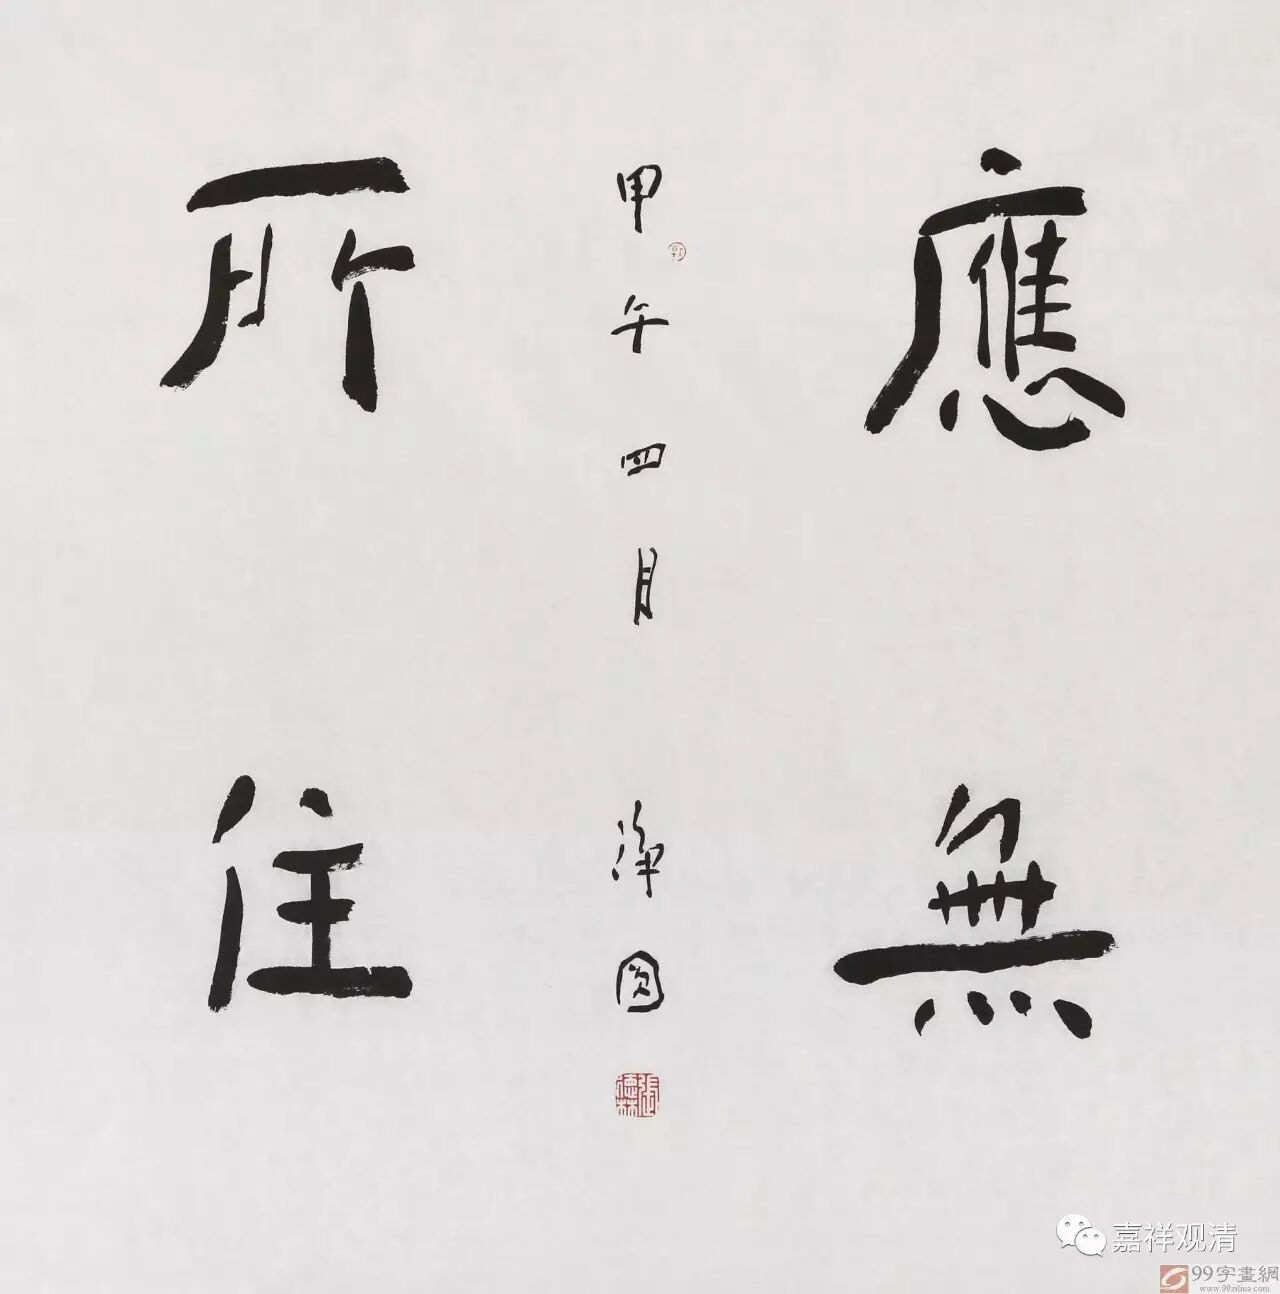 應無
所住
甲午四月 淨圓
張德林
嘉祥观清
99字畫網
www.99zihua.com